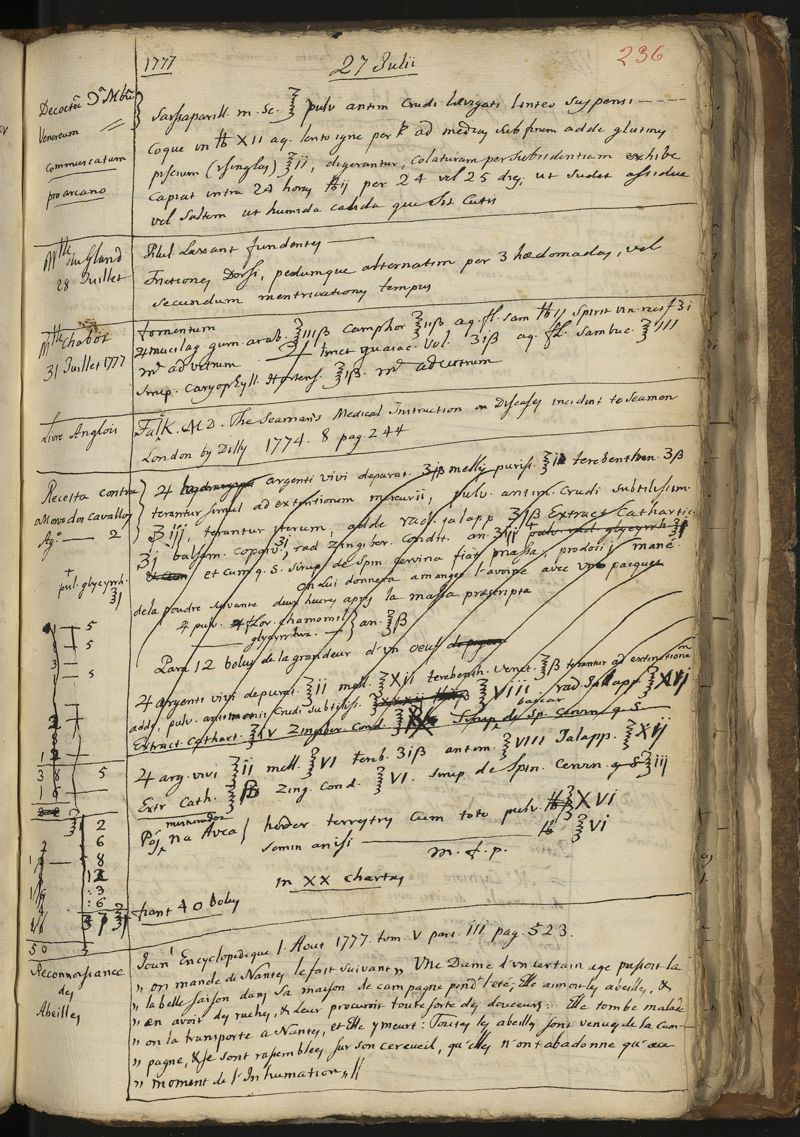 1777
27 Julii
236
Venereum
communicatum
pro arcano
Sarsaparill. m. Sc. ℥ pulv antim Crudi lævigati linteo suspensi
Coque in ℔ XII aq. lento igne per ad medias sub finem adde glutiny
piscium (Isinglas) ℥ii, digerantur, Colaturam per subsidentiam exhibe
Capiat intra 24 horas ℔ij per 24 vel 25 dies, ut sudet assidue
vel saltem ut humida calida que sit Cutis
Mlle
du Gland
28 Juillet
Pilul Laxant fundentes
Frictiones Dorsi, pedumque alternatim per 3 hædomadas, vel
secundum menstruationis tempus
Mlle Chabot
31 Juillet 1777
fomentum
♃ mucilag gum. arab. ℥iiiβ Camphor ℥iiβ aq. fl. sam ℔ij Spirit vin rectif ℥i
m. ad usum ♃ tinct guaiac. Vol. ℥iβ aq. fl. Sambuc. ℥iiii
Sirup. Caryophyll. Hortens. ℥iβ. m. ad usum
Livre Anglois
Falk. M.D. The Seaman's Medical Instruction on Diseases incident to Seamen
London by Dilly 1774. 8 pag. 244
Recetta contra
a Movo dos Cavallos
Ag.º — 2
♃ argenti vivi depurat. ℥iβ mellis puriss. ℥ii terebenthin. ℥β
terantur simul ad extinctionem mercurii, pulv. antim. Crudi subtilissim.
℥iij, terantur iterum, adde rad. jalapp ℥iβ Extract Cathartic
℥i balsam. copaiv. ℥i rad zingiber. Condit. an. ℥iii pulv rad glycyrrh ℥i
et cum q. S. sirup. de Spin cervina fiat massa, pro dosi j mane
+
pul. glycyrrh.
℥i
on lui donnera a manger l'avoine avec un paquet
de la poudre suivante deux heures après la massa prescripta
♃ pulv. Flor. chamomil
glycyrrhiza. — } an. ℥β
Para 12 bolus de la grandeur d'un oeuf
♃ argenti vivi depurat. ℥ii mell. ℥XII terebenth. venet. ℥β terantur ad extinctionem
adde pulv. antimonii Crudi subtiliss. ℥VIII rad Jalapp. ℥XVj
Extract Cathart. ℥iV Zingiber. Cond. Sirup. baccar. de Sp. Cervin q. S.
♃ arg. vivi ℥ii mell. ℥VI tereb. ℥iβ antim. ℥VIII Jalapp. ℥XVij
Extr Cath. Zing. Cond. ℥VI. sirup. de Spin. Cervin q S ℥iij
heder. terrestry cum toto pulv. ℥XVi
semin anisi — ℥Vi
m. f. p.
in XX chartas
fiant 40 bolus
5
5
5
5
2
6
8
12
:3
:6
50
Reconnoissance
des
Abeilles
Journl Encyclopedique 1. Aout 1777. tom. V part. III pag. 523.
„ on mande de Nantes le fait suivant „ Une Dame d'un certain age passoit la
„ la belle saison dans sa maison de campagne pendt l'eté; Elle aimoit les abeilles, &
„ en avoir des ruches, & leur procuroit toute sorte des douceurs: Elle tombe malade
„ on la transporte a Nantes, et Elle y meurt: Toutes les abeilles sont venues de la cam-
„ pagne, & se sont rassemblées sur son cercueil, qu'elles n'ont abadonné qu'au
„ moment de l'Inhumation „